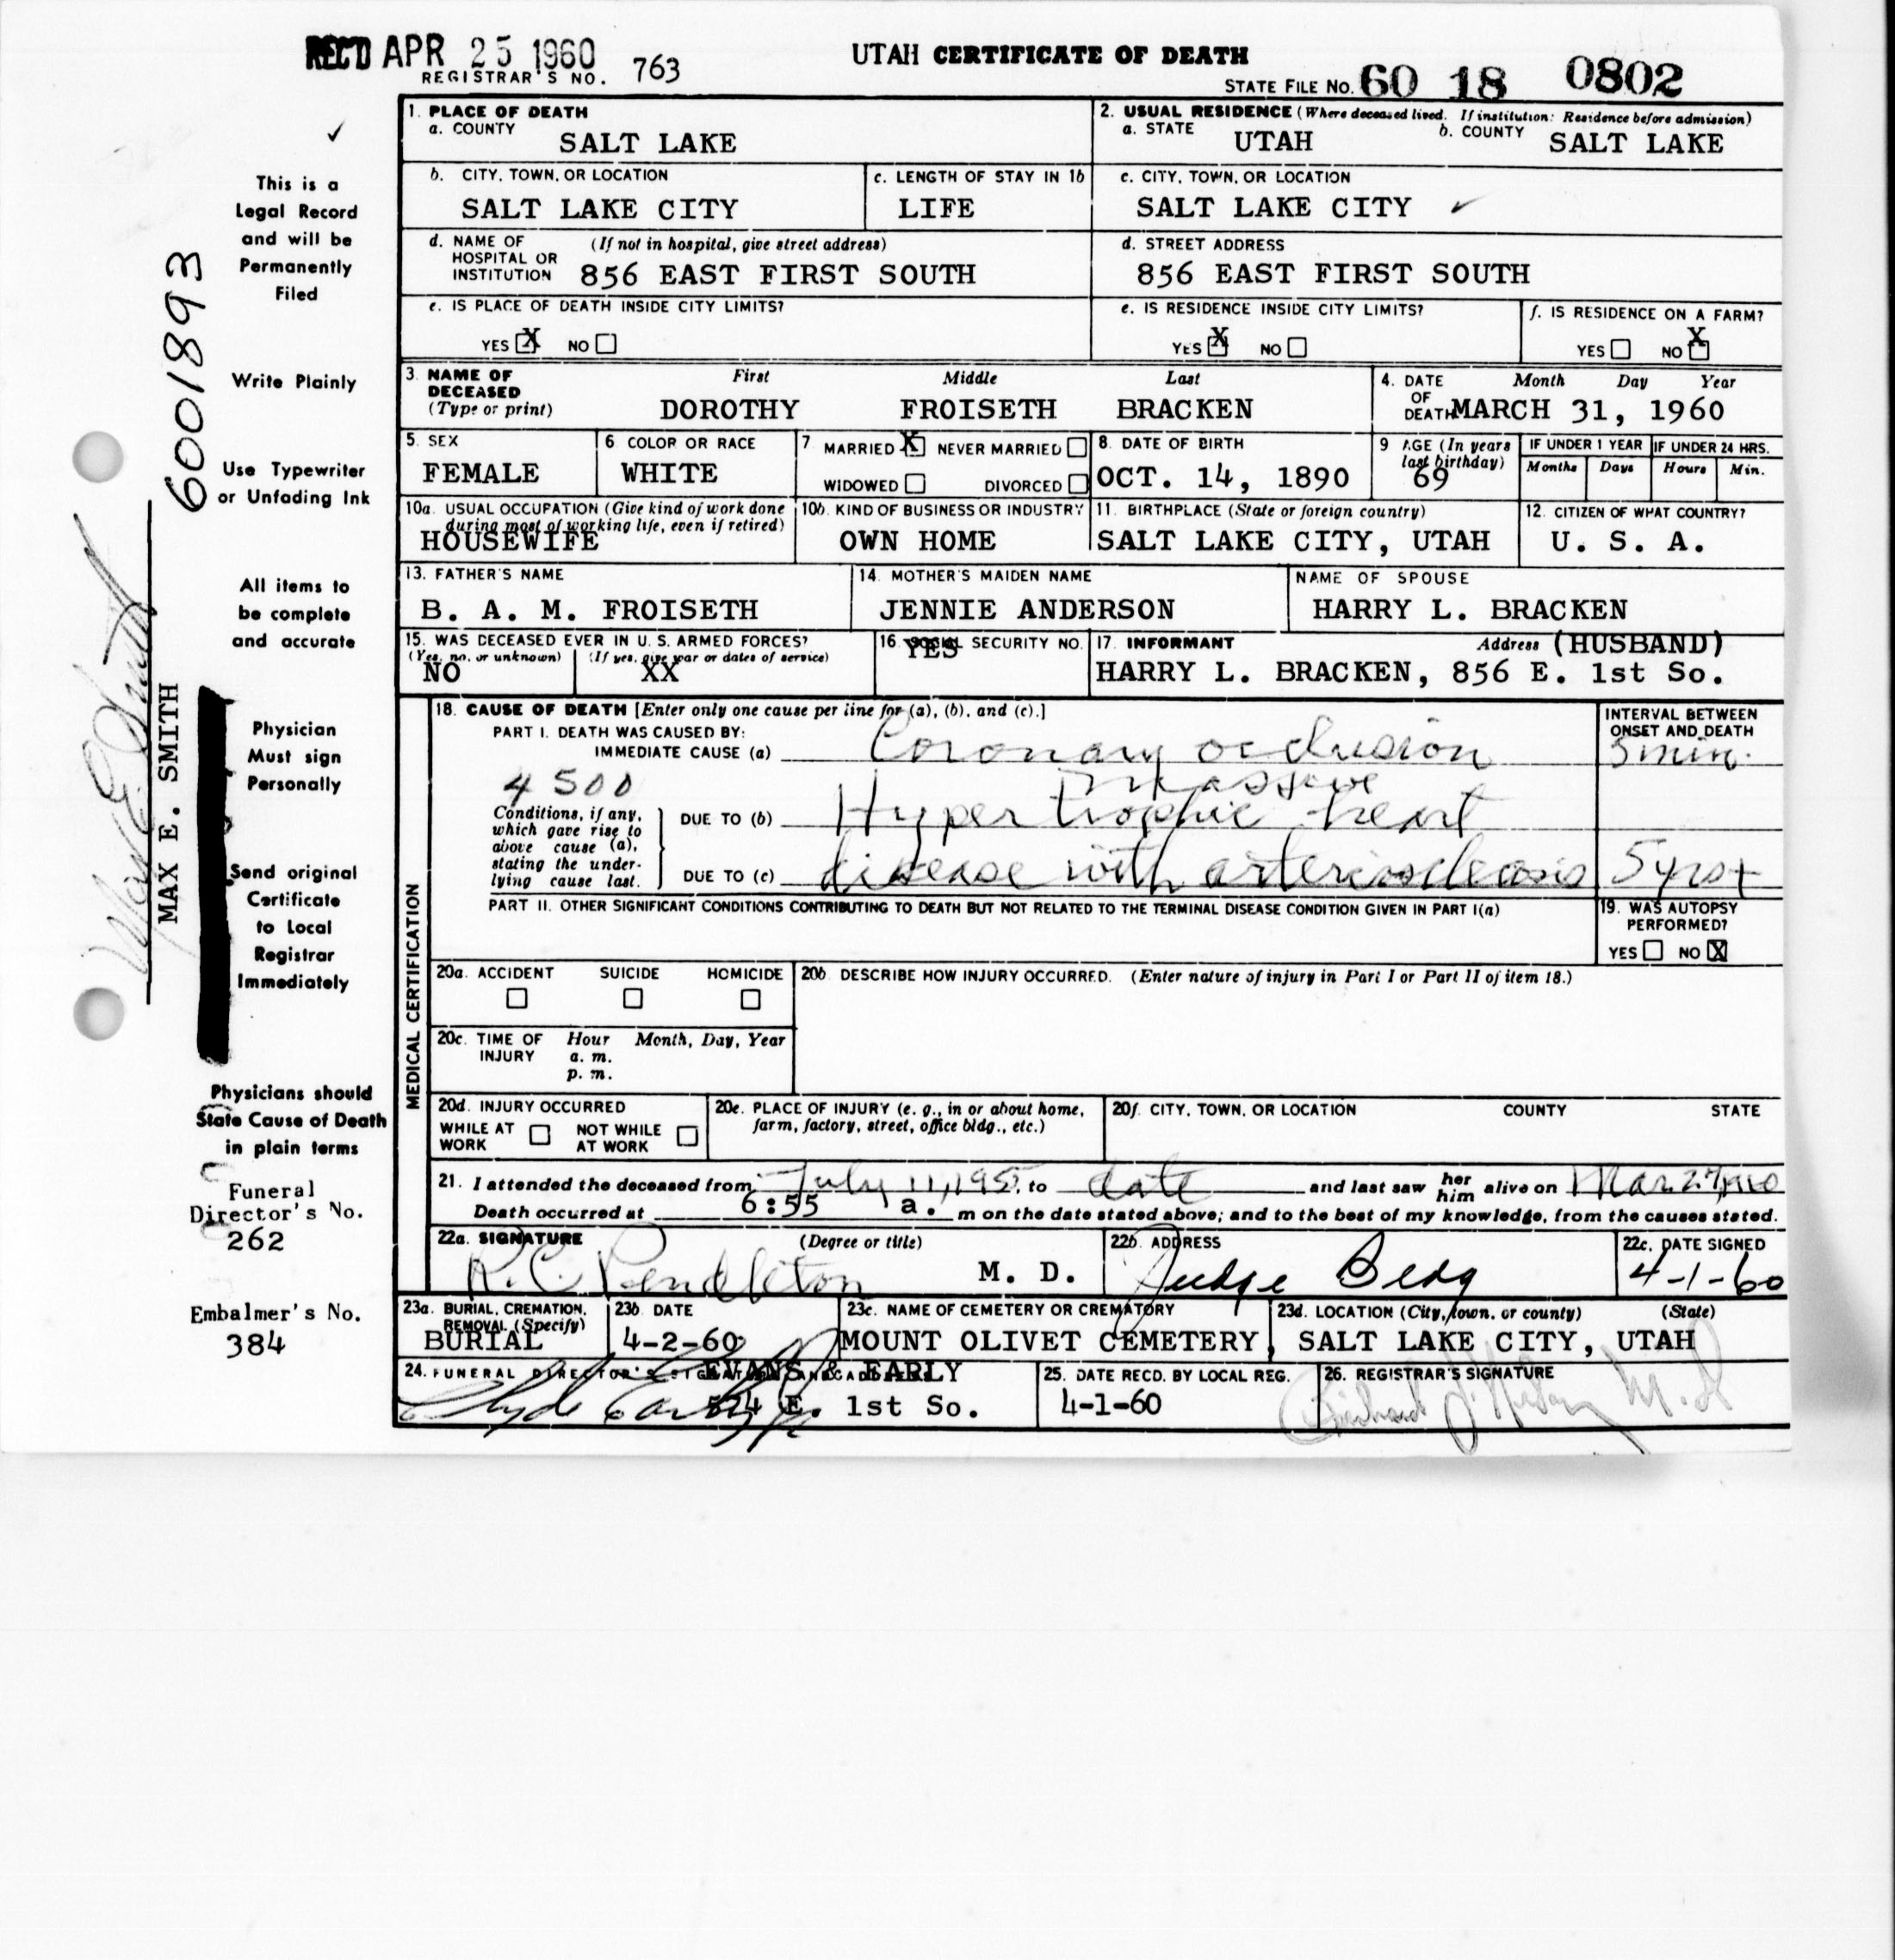 REC'D APR 25 1960
REGISTRAR'S NO. 763
UTAH CERTIFICATE OF DEATH
STATE FILE NO. 60 18 0802
1. PLACE OF DEATH
a. COUNTY SALT LAKE
2. USUAL RESIDENCE (Where deceased lived. If institution: Residence before admission)
a. STATE UTAH b. COUNTY SALT LAKE
b. CITY, TOWN, OR LOCATION SALT LAKE CITY
c. LENGTH OF STAY IN 1b LIFE
c. CITY, TOWN, OR LOCATION SALT LAKE CITY ✓
d. NAME OF HOSPITAL OR INSTITUTION (If not in hospital, give street address) 856 EAST FIRST SOUTH
d. STREET ADDRESS 856 EAST FIRST SOUTH
e. IS PLACE OF DEATH INSIDE CITY LIMITS? YES X NO
e. IS RESIDENCE INSIDE CITY LIMITS? YES X NO
f. IS RESIDENCE ON A FARM? YES NO X
3. NAME OF DECEASED (Type or print) First Middle Last
DOROTHY FROISETH BRACKEN
4. DATE OF DEATH Month Day Year MARCH 31, 1960
5. SEX FEMALE
6. COLOR OR RACE WHITE
7 MARRIED X NEVER MARRIED WIDOWED DIVORCED
8. DATE OF BIRTH OCT. 14, 1890
9 AGE (In years last birthday) 69
IF UNDER 1 YEAR Months Days
IF UNDER 24 HRS. Hours Min.
10a. USUAL OCCUPATION (Give kind of work done during most of working life, even if retired) HOUSEWIFE
10b. KIND OF BUSINESS OR INDUSTRY OWN HOME
11. BIRTHPLACE (State or foreign country) SALT LAKE CITY, UTAH
12. CITIZEN OF WHAT COUNTRY? U. S. A.
13. FATHER'S NAME B. A. M. FROISETH
14. MOTHER'S MAIDEN NAME JENNIE ANDERSON
NAME OF SPOUSE HARRY L. BRACKEN
15. WAS DECEASED EVER IN U. S. ARMED FORCES?
(Yes, no, or unknown) NO (If yes, give war or dates of service) XX
16. SOCIAL SECURITY NO. YES
17. INFORMANT Address (HUSBAND)
HARRY L. BRACKEN, 856 E. 1st So.
MEDICAL CERTIFICATION
18. CAUSE OF DEATH [Enter only one cause per line for (a), (b), and (c).]
INTERVAL BETWEEN ONSET AND DEATH
PART I. DEATH WAS CAUSED BY:
IMMEDIATE CAUSE (a) Coronary occlusion 5 min.
4500 massive
Conditions, if any, which gave rise to above cause (a), stating the underlying cause last.
DUE TO (b) Hypertrophic heart
DUE TO (c) disease with arteriosclerosis 5 yrs+
PART II. OTHER SIGNIFICANT CONDITIONS CONTRIBUTING TO DEATH BUT NOT RELATED TO THE TERMINAL DISEASE CONDITION GIVEN IN PART I(a)
19. WAS AUTOPSY PERFORMED? YES NO X
20a. ACCIDENT SUICIDE HOMICIDE
20b. DESCRIBE HOW INJURY OCCURRED. (Enter nature of injury in Part I or Part II of item 18.)
20c. TIME OF INJURY Hour Month, Day, Year
a. m.
p. m.
20d. INJURY OCCURRED
WHILE AT WORK NOT WHILE AT WORK
20e. PLACE OF INJURY (e. g., in or about home, farm, factory, street, office bldg., etc.)
20f. CITY, TOWN, OR LOCATION COUNTY STATE
21. I attended the deceased from July 11, 195 to date and last saw her him alive on Mar. 27, 1960
Death occurred at 6:55 a. m on the date stated above; and to the best of my knowledge, from the causes stated.
22a. SIGNATURE (Degree or title) R. C. Pendleton M. D.
22b. ADDRESS Judge Bldg
22c. DATE SIGNED 4-1-60
23a. BURIAL, CREMATION, REMOVAL (Specify) BURIAL
23b. DATE 4-2-60
23c. NAME OF CEMETERY OR CREMATORY MOUNT OLIVET CEMETERY,
23d. LOCATION (City, town, or county) (State) SALT LAKE CITY, UTAH
24. FUNERAL DIRECTOR'S SIGNATURE AND ADDRESS EVANS & EARLY
Clyde Early 574 E. 1st So.
25. DATE RECD. BY LOCAL REG. 4-1-60
26. REGISTRAR'S SIGNATURE M.D.
✓
This is a
Legal Record
and will be
Permanently
Filed
6001893
Write Plainly
Use Typewriter
or Unfading Ink
All items to
be complete
and accurate
Max E. Smith
MAX E. SMITH
Physician
Must sign
Personally
Send original
Certificate
to Local
Registrar
Immediately
Physicians should
State Cause of Death
in plain terms
Funeral
Director's No.
262
Embalmer's No.
384